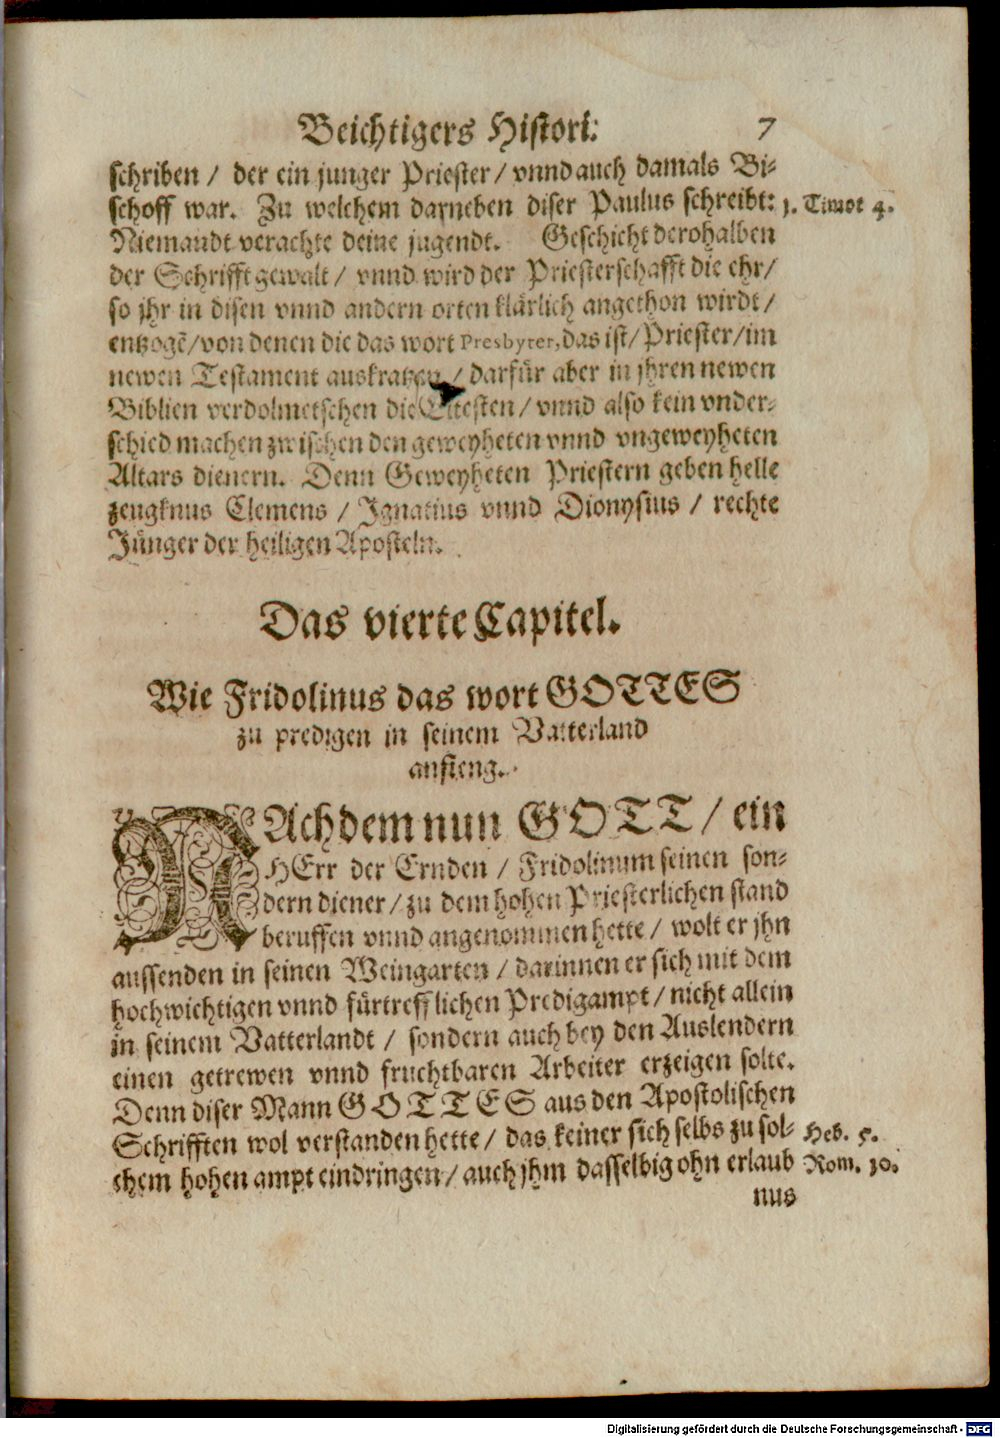 Beichtigers Histori. 7
schriben / der ein junger Priester / vnnd auch damals Bi-
schoff war. Zu welchem darneben diser Paulus schreibt: 1. Timot 4.
Niemandt verachte deine jugendt. Geschicht derohalben
der Schrifft gewalt / vnnd wird der Priesterschafft die ehr /
so jhr in disen vnnd andern orten klärlich angethon wirdt /
entzogē / von denen die das wort Presbyter, das ist / Priester / im
newen Testament auskratzen / darfür aber in jhren newen
Biblien verdolmetschen die Eltesten / vnnd also kein vnder-
schied machen zwischen den geweyheten vnnd vngeweyheten
Altars dienern. Denn Geweyheten Priestern geben helle
zeugknus Clemens / Ignatius vnnd Dionysius / rechte
Jünger der heiligen Aposteln.
Das vierte Capitel.
Wie Fridolinus das wort GOTTES
zu predigen in seinem Vatterland
anfieng.
NAchdem nun GOTT / ein
HErr der Ernden / Fridolinum seinen son-
dern diener / zu dem hohen Priesterlichen stand
beruffen vnnd angenommen hette / wolt er jhn
aussenden in seinen Weingarten / darinnen er sich mit dem
hochwichtigen vnnd fürtrefflichen Predigampt / nicht allein
in seinem Vatterlandt / sondern auch bey den Auslendern
einen getrewen vnnd fruchtbaren Arbeiter erzeigen solte.
Denn diser Mann GOTTES aus den Apostolischen
Schrifften wol verstanden hette / das keiner sich selbs zu sol- Heb. 5.
chem hohen ampt eindringen / auch jhm dasselbig ohn erlaub Rom. 10.
nus
Digitalisierung gefördert durch die Deutsche Forschungsgemeinschaft - DFG